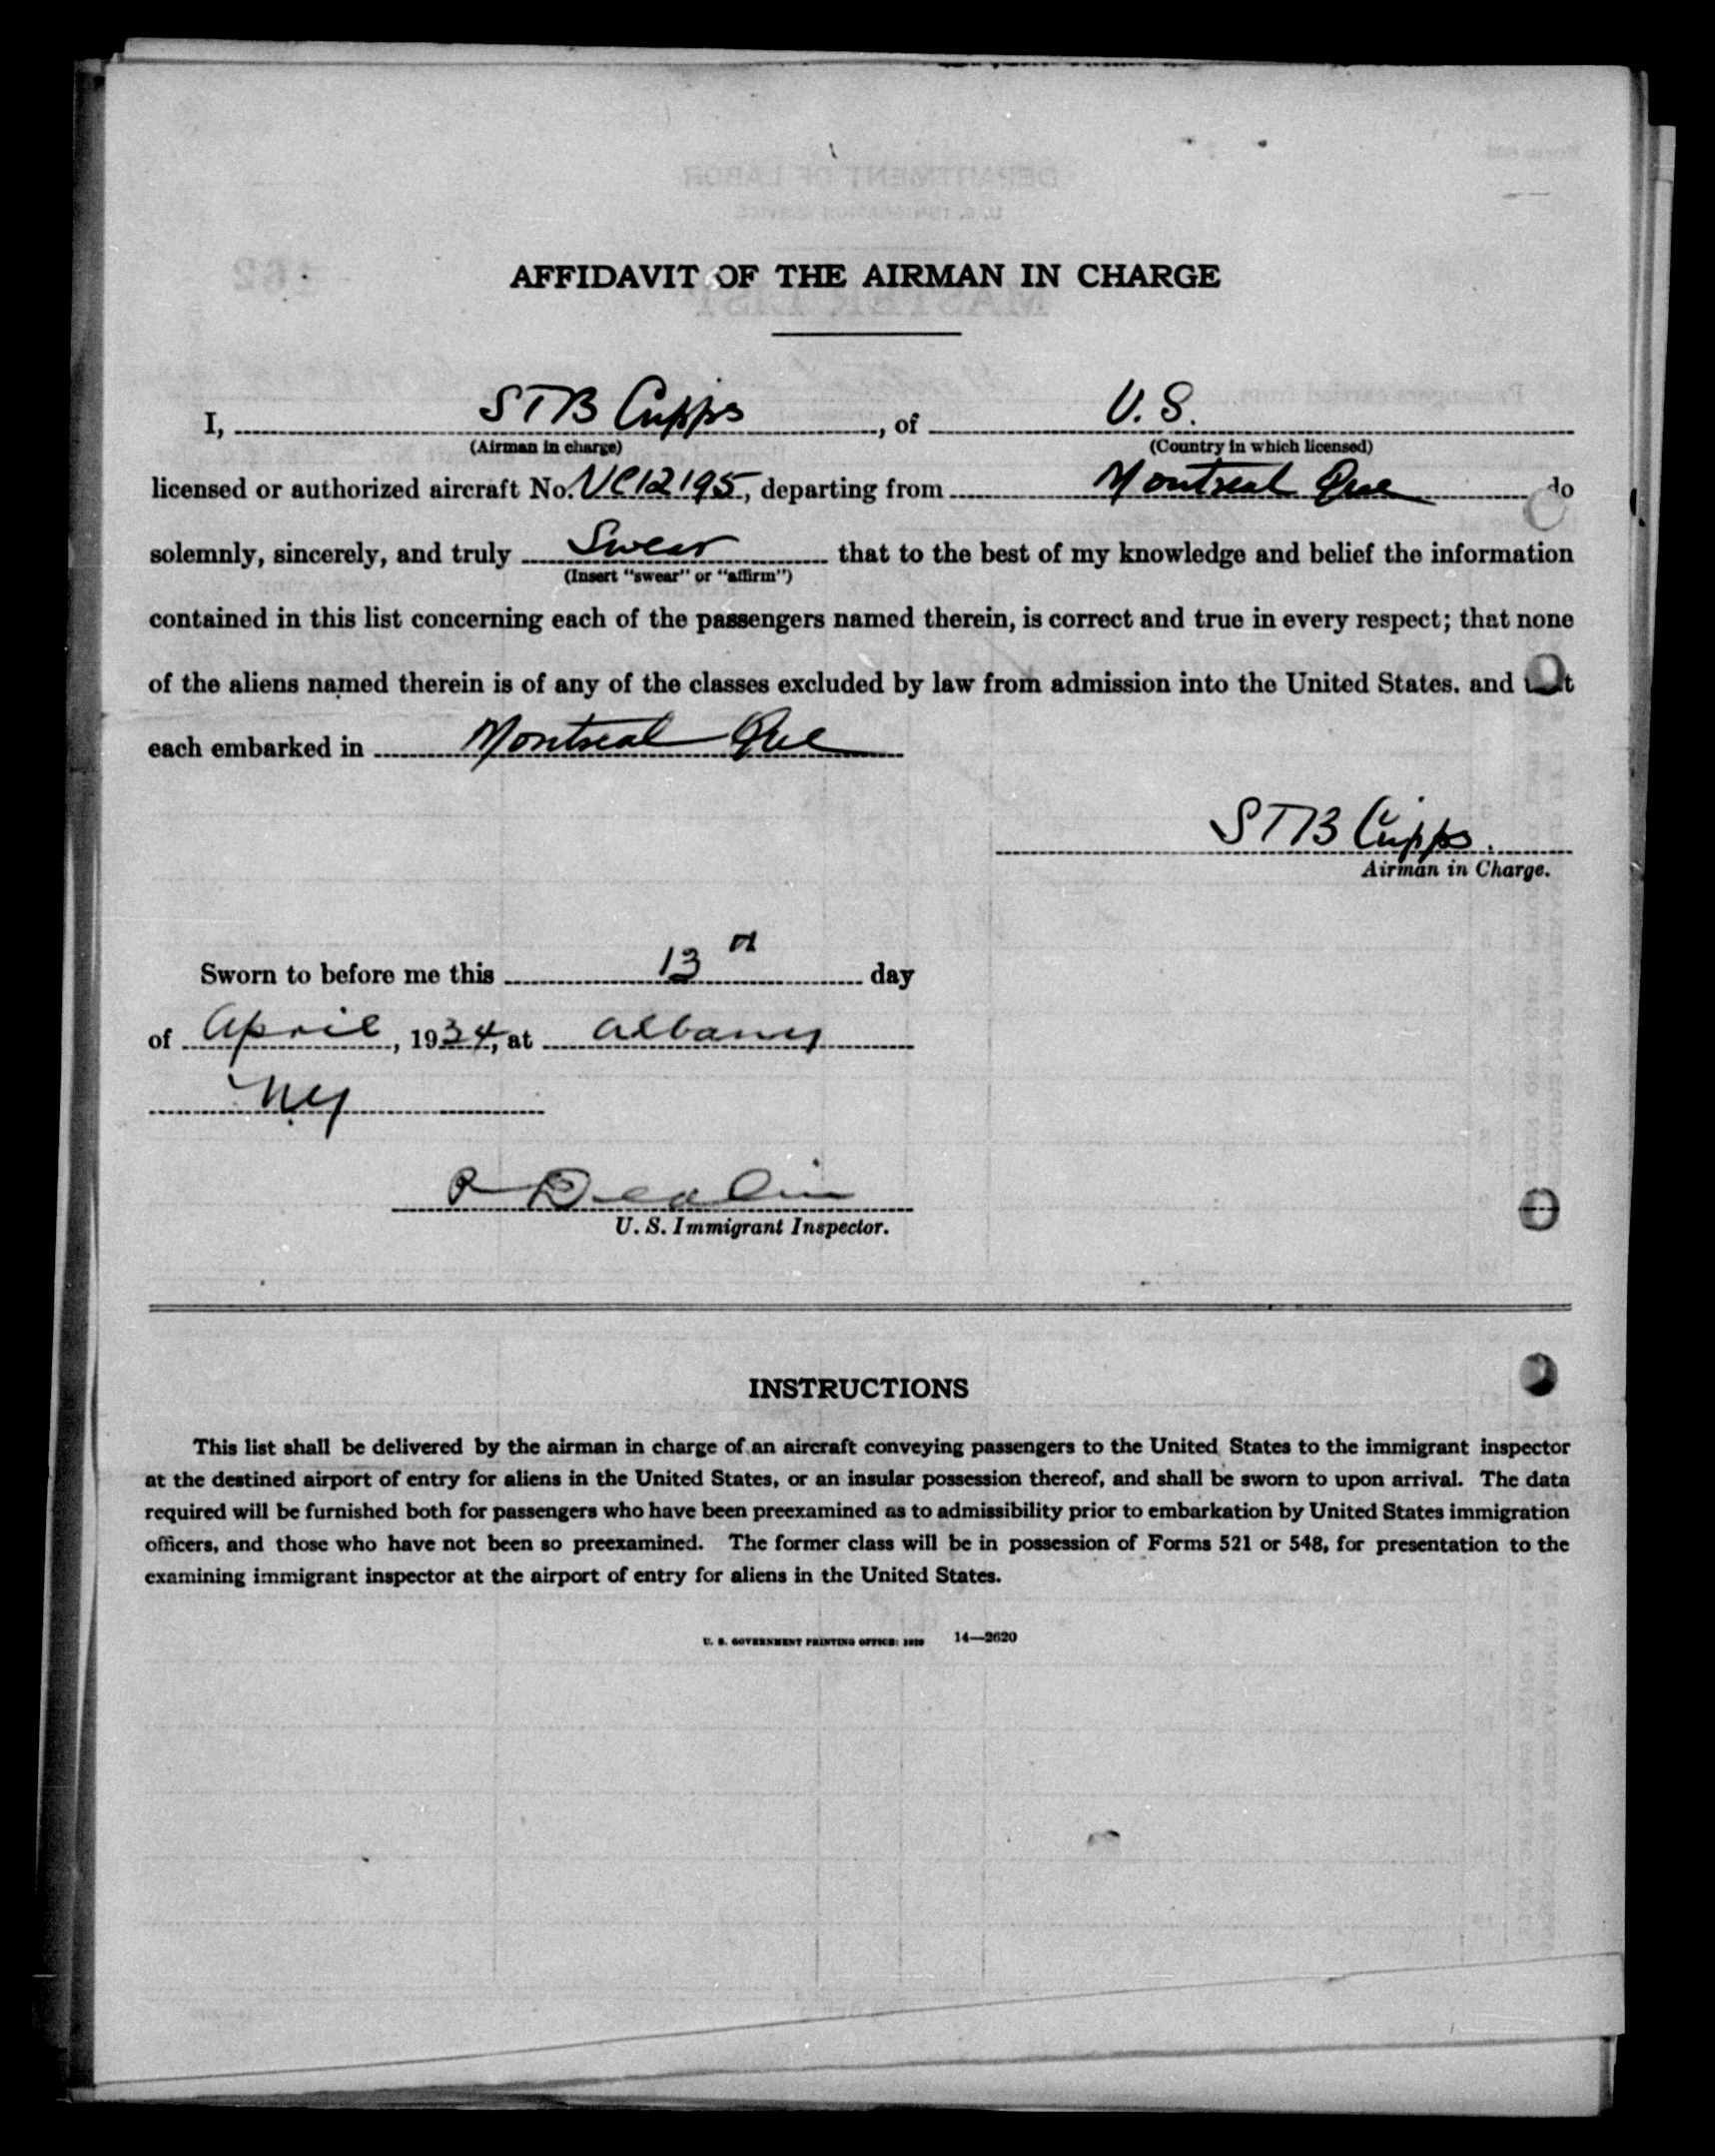 AFFIDAVIT OF THE AIRMAN IN CHARGE
I, STB Cupps, of U. S.
(Airman in charge) (Country in which licensed)
licensed or authorized aircraft No. NC12195, departing from Montreal Que do
solemnly, sincerely, and truly Swear that to the best of my knowledge and belief the information
(Insert "swear" or "affirm")
contained in this list concerning each of the passengers named therein, is correct and true in every respect; that none
of the aliens named therein is of any of the classes excluded by law from admission into the United States, and that
each embarked in Montreal Que
STB Cupps.
Airman in Charge.
Sworn to before me this 13th day
of April, 1934, at Albany
NY
U. S. Immigrant Inspector.
INSTRUCTIONS
This list shall be delivered by the airman in charge of an aircraft conveying passengers to the United States to the immigrant inspector
at the destined airport of entry for aliens in the United States, or an insular possession thereof, and shall be sworn to upon arrival. The data
required will be furnished both for passengers who have been preexamined as to admissibility prior to embarkation by United States immigration
officers, and those who have not been so preexamined. The former class will be in possession of Forms 521 or 548, for presentation to the
examining immigrant inspector at the airport of entry for aliens in the United States.
U. S. GOVERNMENT PRINTING OFFICE: 14—2620